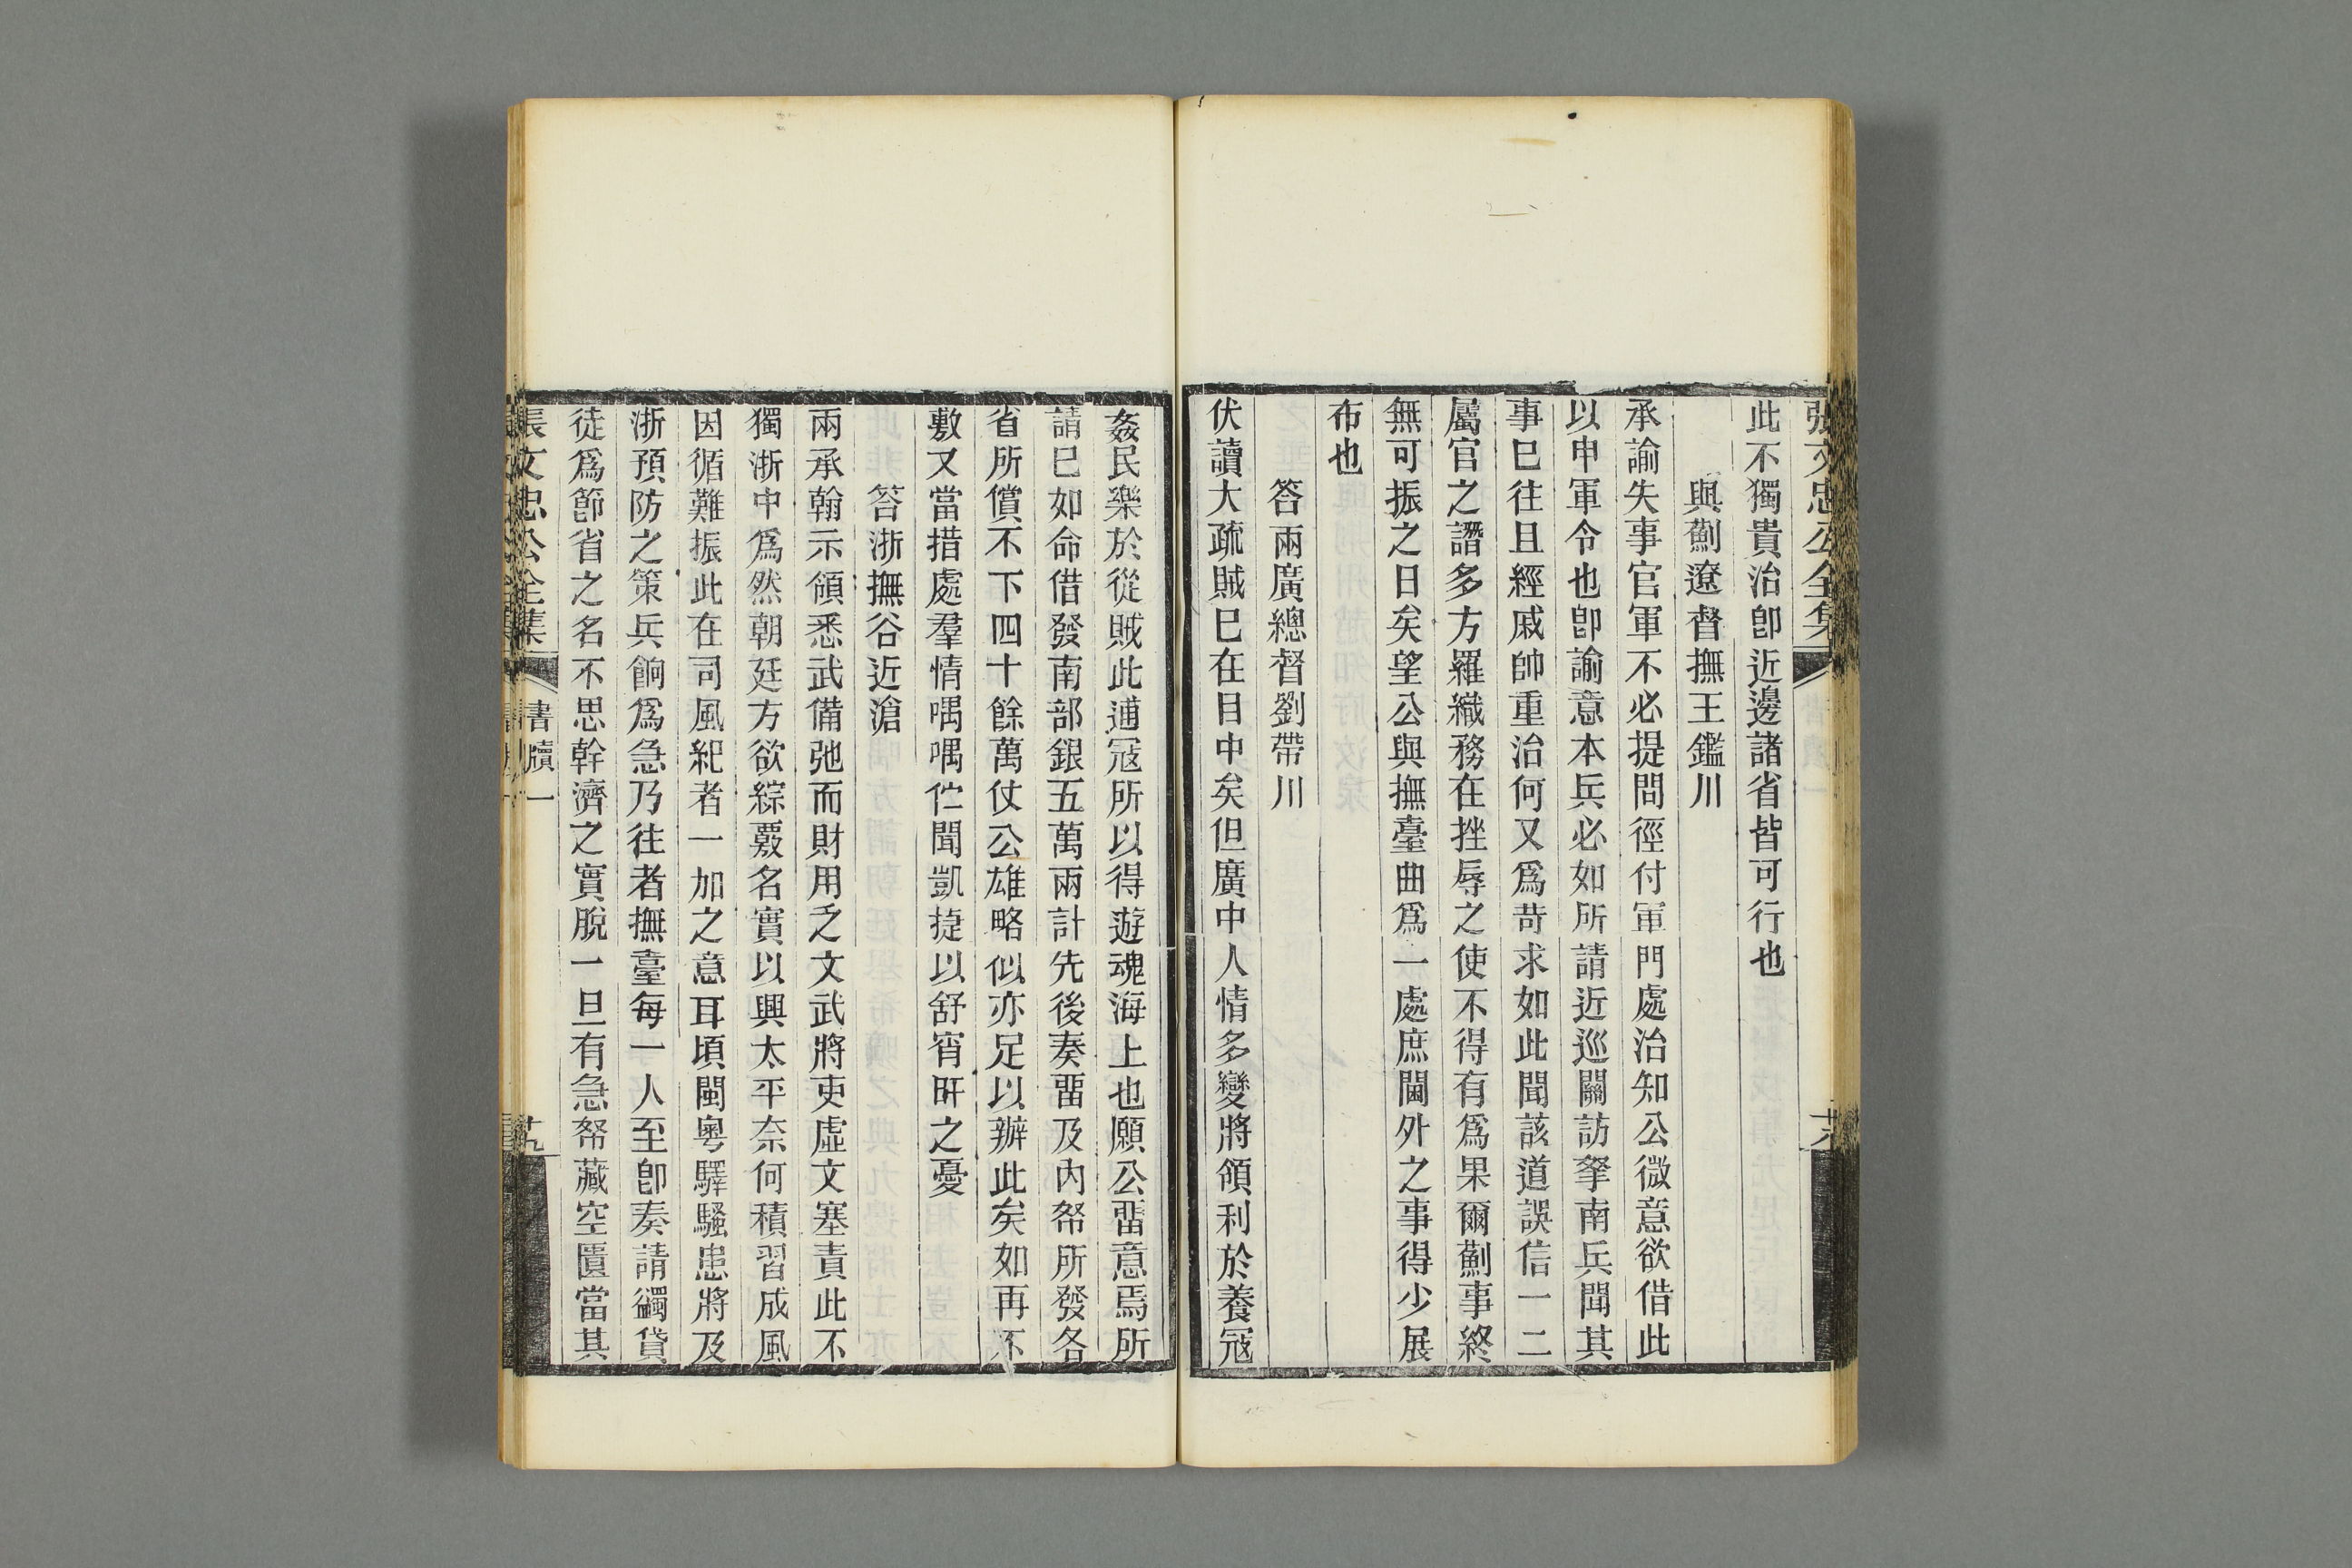 張文忠公全集
十八
此不獨貴治卽近邊諸省皆可行也
與薊遼督撫王鑑川
承諭失事官軍不必提問徑付軍門處治知公微意欲借此
以申軍令也卽諭意本兵必如所請近巡關訪拏南兵聞其
事已往且經戚帥重治何又爲苛求如此聞該道誤信一二
屬官之譖多方羅織務在挫辱之使不得有爲果爾薊事終
無可振之日矣望公與撫臺曲爲一處庶閫外之事得少展
布也
答兩廣總督劉帶川
伏讀大疏賊已在目中矣但廣中人情多變將領利於養寇
姦民樂於從賊此逋寇所以得遊魂海上也願公畱意焉所
請已如命借發南部銀五萬兩計先後奏畱及內帑所發各
省所償不下四十餘萬仗公雄略似亦足以辦此矣如再不
敷又當措處羣情喁喁伫聞凱捷以舒宵旰之憂
答浙撫谷近滄
兩承翰示領悉武備弛而財用乏文武將吏虛文塞責此不
獨浙中爲然朝廷方欲綜覈名實以興太平奈何積習成風
因循難振此在司風紀者一加之意耳頃閩粵驛騷患將及
浙預防之策兵餉爲急乃往者撫臺每一人至卽奏請蠲貸
徒爲節省之名不思幹濟之實脫一旦有急帑藏空匱當其
張文忠公全集
書牘一
十九